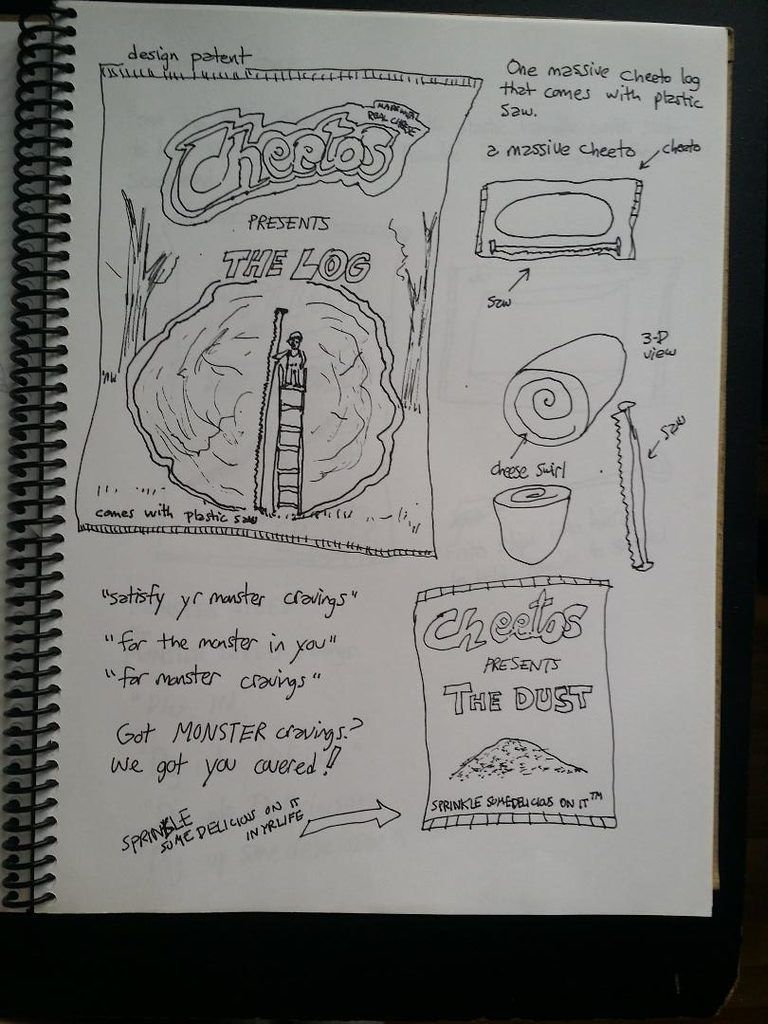 design patent
Cheetos
MADE WITH
REAL CHEESE
PRESENTS
THE LOG
comes with plastic saw
One massive cheeto log
that comes with plastic
saw.
a massive cheeto
cheeto
saw
3-D
view
saw
cheese swirl
"satisfy yr monster cravings"
"for the monster in you"
"for monster cravings"
Got MONSTER cravings?
We got you covered!!
SPRINKLE
SOME DELICIOUS ON IT
IN YR LIFE
Cheetos
PRESENTS
THE DUST
SPRINKLE SOME DELICIOUS ON IT™